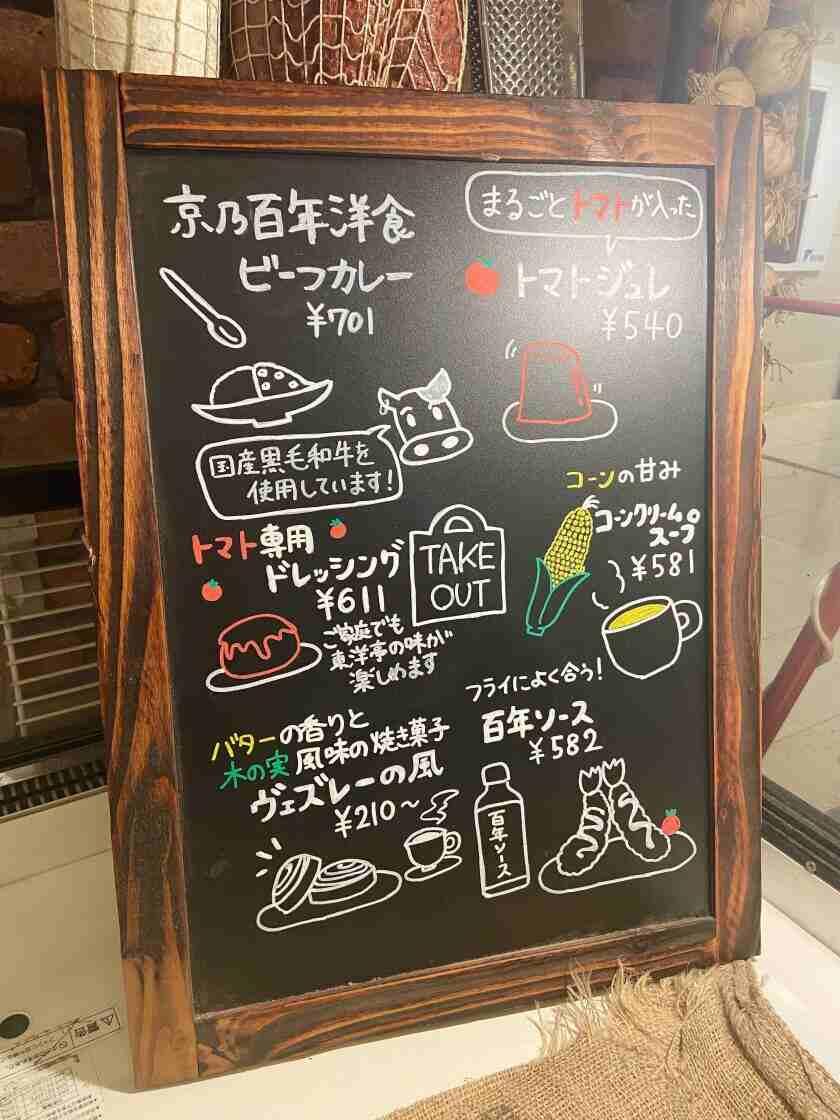 京乃百年洋食
ビーフカレー
¥701
国産黒毛和牛を
使用しています!
まるごとトマトが入った
トマトジュレ
¥540
トマト専用
ドレッシング
¥611
ご家庭でも
東洋亭の味が
楽しめます
TAKE
OUT
コーンの甘み
コーンクリーム
スープ
¥581
バターの香りと
木の実風味の焼き菓子
ヴェズレーの風
¥210~
フライによく合う!
百年ソース
¥582
百年ソース